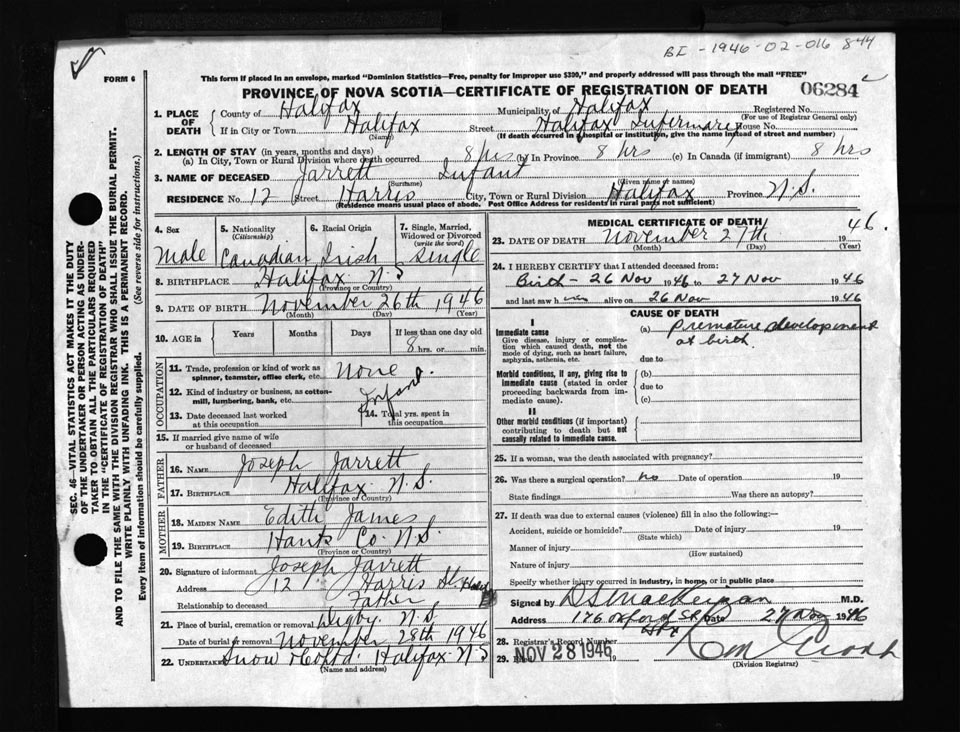 BI - 1946-02-016 844
FORM 6
This form if placed in an envelope, marked "Dominion Statistics—Free, penalty for improper use $300," and properly addressed will pass through the mail "FREE"
PROVINCE OF NOVA SCOTIA—CERTIFICATE OF REGISTRATION OF DEATH
06284
1. PLACE OF DEATH
County of Halifax Municipality of Halifax Registered No.
(For use of Registrar General only)
If in City or Town Halifax Street Halifax Infirmary House No.
(Name) (If death occurred in a hospital or institution, give the name instead of street and number)
2. LENGTH OF STAY (in years, months and days)
(a) In City, Town or Rural Division where death occurred 8 hrs (b) In Province 8 hrs (c) In Canada (if immigrant) 8 hrs
3. NAME OF DECEASED Jarrett Infant
(Surname) (Given name or names)
RESIDENCE No. 12 Street Harris City, Town or Rural Division Halifax Province N.S.
(Residence means usual place of abode. Post Office Address for residents in rural parts not sufficient)
4. Sex
Male
5. Nationality
(Citizenship)
Canadian
6. Racial Origin
Irish
7. Single, Married, Widowed or Divorced
(write the word)
Single
8. BIRTHPLACE Halifax N.S
(Province or Country)
9. DATE OF BIRTH November 26th 1946
(Month) (Day) (Year)
10. AGE in Years Months Days If less than one day old
8 hrs. or min.
OCCUPATION
11. Trade, profession or kind of work as spinner, teamster, office clerk, etc. None
12. Kind of industry or business, as cotton-mill, lumbering, bank, etc. Infant
13. Date deceased last worked at this occupation
14. Total yrs. spent in this occupation
15. If married give name of wife or husband of deceased
FATHER
16. NAME Joseph Jarrett
17. BIRTHPLACE Halifax N.S.
(Province or Country)
MOTHER
18. MAIDEN NAME Edith James
19. BIRTHPLACE Hants Co. N.S.
(Province or Country)
20. Signature of informant Joseph Jarrett
Address 12 Harris St.
Relationship to deceased Father
21. Place of burial, cremation or removal Digby. N.S.
Date of burial or removal November 28th 1946
22. UNDERTAKER Snow & Co Ltd. Halifax N.S
(Name and address)
MEDICAL CERTIFICATE OF DEATH
23. DATE OF DEATH November 27th 1946.
(Month) (Day) (Year)
24. I HEREBY CERTIFY that I attended deceased from:
Birth - 26 Nov 1946 to 27 Nov 1946
and last saw h alive on 26 Nov 1946
CAUSE OF DEATH
I
Immediate cause
Give disease, injury or complication which caused death, not the mode of dying, such as heart failure, asphyxia, asthenia, etc.
(a) Premature development at birth.
due to
Morbid conditions, if any, giving rise to immediate cause (stated in order proceeding backwards from immediate cause).
(b)
due to
(c)
II
Other morbid conditions (if important) contributing to death but not causally related to immediate cause.
25. If a woman, was the death associated with pregnancy?
26. Was there a surgical operation? no Date of operation 19
State findings Was there an autopsy?
27. If death was due to external causes (violence) fill in also the following:—
Accident, suicide or homicide? Date of injury 19
(State which)
Manner of injury
(How sustained)
Nature of injury
Specify whether injury occurred in industry, in home, or in public place
Signed by M.D.
Address 176 Oxford St. Hfx Date 27 Nov 1946
28. Registrar's Record Number
29. Filed NOV 28 1946 19
(Division Registrar)
SEC. 46—VITAL STATISTICS ACT MAKES IT THE DUTY
OF THE UNDERTAKER OR PERSON ACTING AS UNDERTAKER TO OBTAIN ALL THE PARTICULARS REQUIRED
IN THE "CERTIFICATE OF REGISTRATION OF DEATH"
AND TO FILE THE SAME WITH THE DIVISION REGISTRAR WHO SHALL ISSUE THE BURIAL PERMIT.
WRITE PLAINLY WITH UNFADING INK. THIS IS A PERMANENT RECORD.
Every item of information should be carefully supplied. (See reverse side for instructions.)